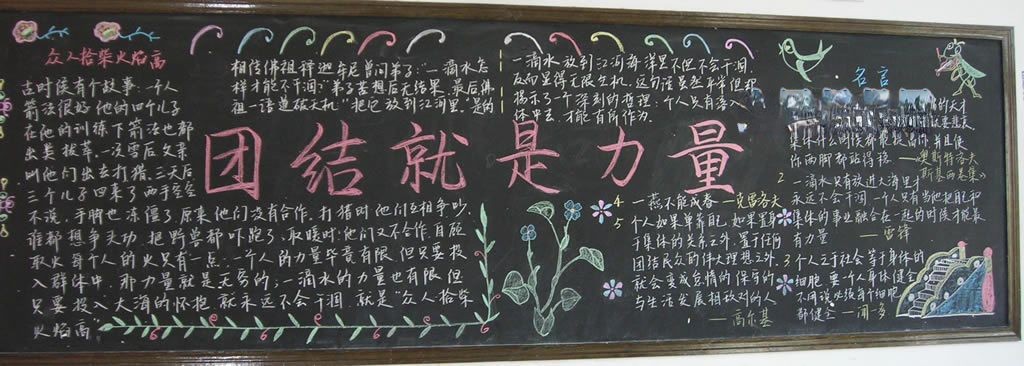 众人拾柴火焰高
古时候有个故事：一个人
箭法很好他的四个儿子
在他的训练下箭法也都
出类拔萃。一次雪后父亲
叫他们出去打猎，三天后
三个儿子回来了两手空空
不说，手脚也冻僵了原来他们没有合作，打猎时他们互相争吵
谁都想争头功，把野兽都吓跑了，取暖时，他们又不合作，自顾
取火每个人的火只有一点。一个人的力量毕竟有限，但只要投
入群体中，那力量就是无穷的；一滴水的力量也有限，但
只要投入大海的怀抱，就永远不会干涸，就是“众人拾柴
火焰高”
相传佛祖释迦牟尼曾问弟子：“一滴水怎
样才能不干涸”弟子苦想后无结果，最后佛
祖一语道破天机“把它放到江河里。”是的
一滴水放到江河海洋里不但不会干涸，
反而里得无限生机。这句话虽然平常但却
揭示了一个深刻的哲理：个人只有落入
体中去，才能有所作为。
团结就是力量
名言
的天才
集体什么时候都能提高你，并且使
你两脚都站得稳。——奥斯特洛夫
斯基
2 一滴水只有放进大海里才
永远不会干涸，一个人只有当他把自己和
集体的事业融合在一起的时候才能最
有力量 ——雷锋
3 个人之于社会等于身体的
细胞，要一个人身体健全
不用说必须每个细胞
都健全——闻一多
4 一燕不能成春——克雷洛夫
5 个人如果单靠自己，如果置身
于集体的关系之外，置于任何
团结民众的伟大理想之外，
就会变成怠惰的保守的
与生活发展相敌对的人
——高尔基